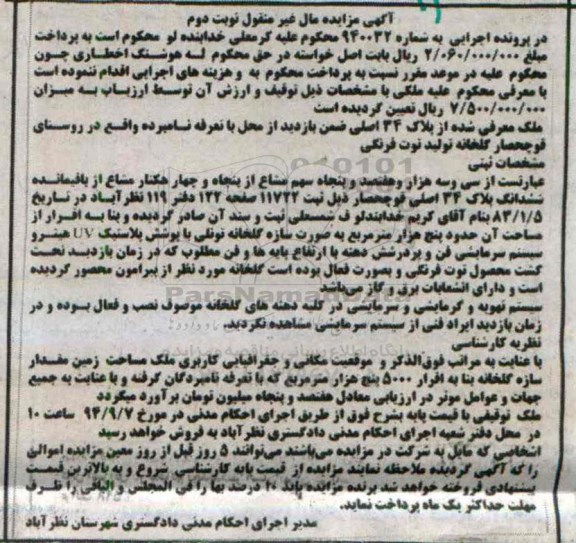 آگهی مزایده مال غیر منقول نوبت دوم
در پرونده اجرایی به شماره ۹۴۰۰۳۲ محکوم علیه کرمعلی خدابنده لو محکوم است به پرداخت
مبلغ ۲/۰۶۰/۰۰۰/۰۰۰ ریال بابت اصل خواسته در حق محکوم له هوشنگ اخطاری چون
محکوم علیه در موعد مقرر نسبت به پرداخت محکوم به و هزینه های اجرایی اقدام ننموده است
با معرفی محکوم علیه ملکی با مشخصات ذیل توقیف و ارزش آن توسط ارزیاب به میزان
۷/۵۰۰/۰۰۰/۰۰۰ ریال تعیین گردیده است
ملک معرفی شده از پلاک ۳۴ اصلی ضمن بازدید از محل با تعرفه نامبرده واقع در روستای
قوچحصار گلخانه تولید توت فرنگی
مشخصات ثبتی
عبارتست از سی وسه هزار وهفتصد و پنجاه سهم مشاع از پنجاه و چهار هکتار مشاع از باقیمانده
ششدانگ پلاک ۳۴ اصلی قوچحصار ذیل ثبت ۱۱۷۲۲ صفحه ۱۲۲ دفتر ۱۱۹ نظرآباد در تاریخ
۸۳/۱/۵ بنام آقای کریم خدابندلو ف شمسعلی ثبت و سند آن صادر گردیده و بنا به اقرار از
مساحت آن حدود پنج هزار مترمربع به صورت سازه گلخانه تونلی با پوشش پلاستیک UV هیترو
سیستم سرمایشی فن و پردرشش دهنه با ارتفاع پایه ها و فن مطلوب که در زمان بازدید تحت
کشت محصول توت فرنگی و بصورت فعال بوده است گلخانه مورد نظر از پیرامون محصور گردیده
است و دارای انشعابات برق و گاز می‌باشد
سیستم تهویه و گرمایشی و سرمایشی در کلیه دهنه های گلخانه موصوف نصب و فعال بوده و در
زمان بازدید ایراد فنی از سیستم سرمایشی مشاهده نگردید.
نظریه کارشناسی
با عنایت به مراتب فوق‌الذکر و موقعیت مکانی و جغرافیایی کاربری ملک مساحت زمین مقدار
سازه گلخانه بنا به اقرار ۵۰۰۰ پنج هزار مترمربع که با تعرفه نامبردگان گرفته و با عنایت به جمیع
جهات و عوامل موثر در ارزیابی معادل هفتصد و پنجاه میلیون تومان برآورد میگردد
ملک توقیفی با قیمت پایه بشرح فوق از طریق اجرای احکام مدنی در مورخ ۹۴/۹/۷ ساعت ۱۰
در محل دفتر شعبه اجرای احکام مدنی دادگستری نظرآباد به فروش خواهد رسید
اشخاصی که مایل به شرکت در مزایده می‌باشند می‌توانند ۵ روز قبل از روز معین مزایده اموالی
را که آگهی گردیده ملاحظه نمایند مزایده از قیمت پایه کارشناسی شروع و به بالاترین قیمت
پیشنهادی فروخته خواهد شد برنده مزایده باید ۱۰ درصد بها را فی المجلس و الباقی را ظرف
مهلت حداکثر یک ماه پرداخت نماید.
مدیر اجرای احکام مدنی دادگستری شهرستان نظرآباد